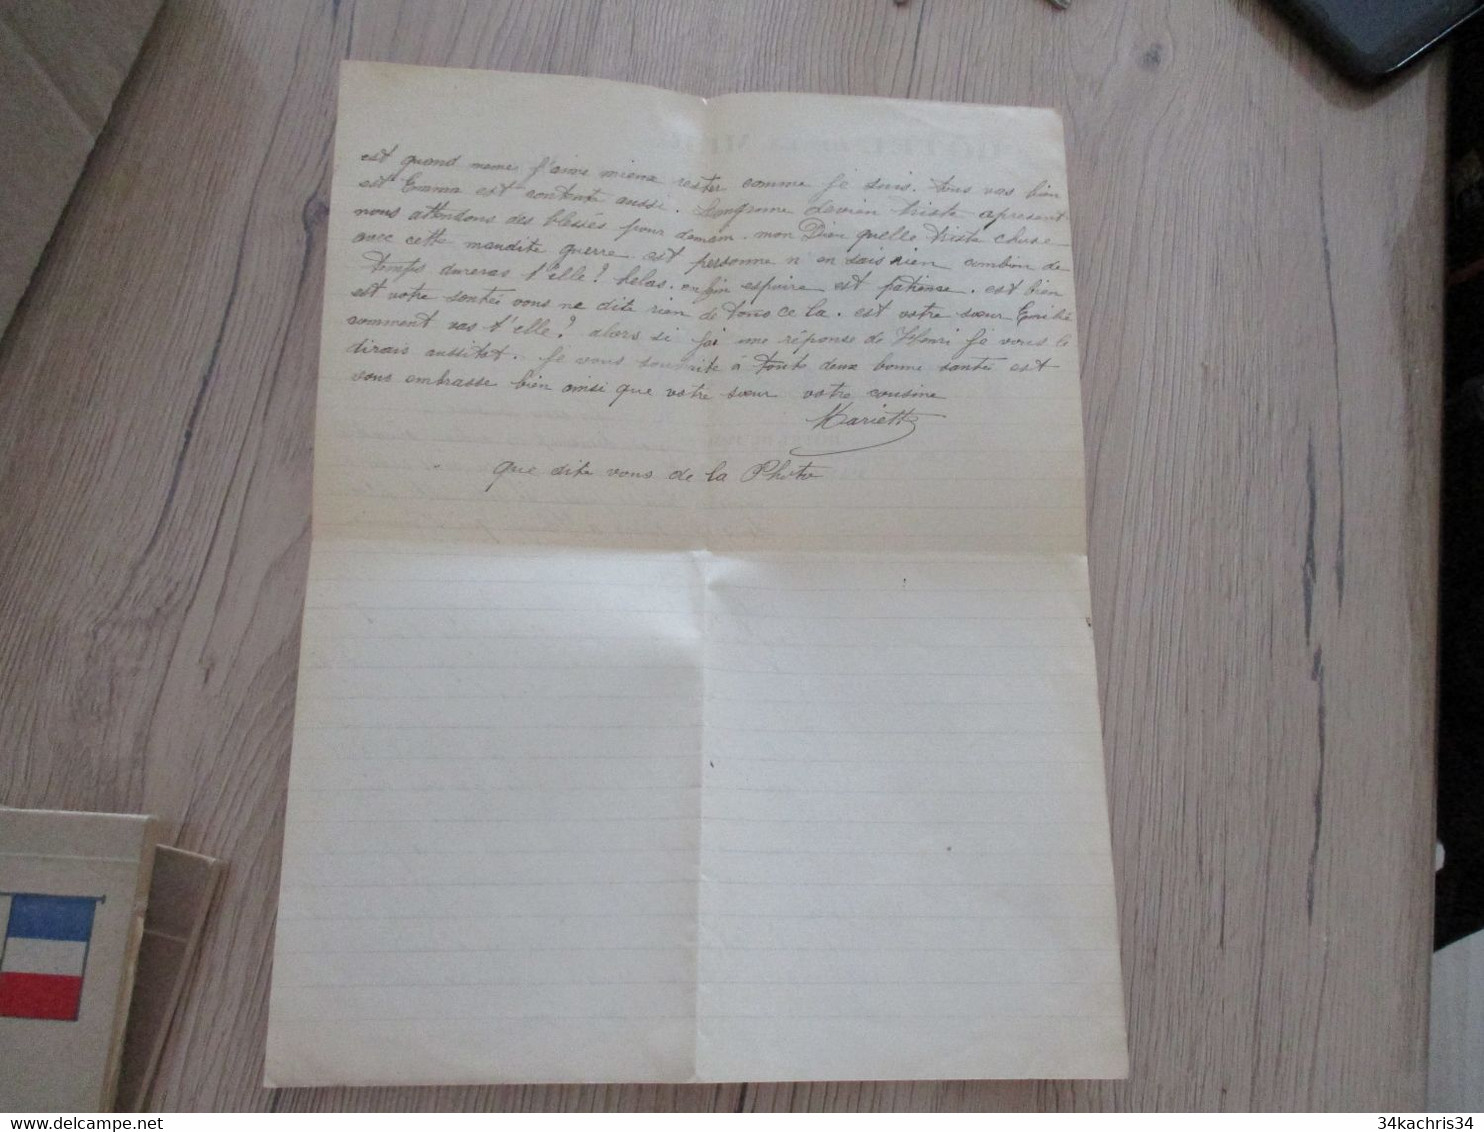 est quand meme j'aime mieux rester comme je suis. tous vas bien
est Emma est contente aussi. Langrune devien triste apresent
nous attendons des blessés pour demain. mon Dieu quelle triste chose
avec cette maudite guerre est personne n'en sais rien combien de
temps dureras t'elle? helas. enfin espoire est patience. est bien
est votre santée vous ne dite rien de tous ce la. est votre sœur
comment vas t'elle? alors si jai une réponse de Henri je vous le
dirais aussitot. Je vous souhaite à toute deux bonne santée est
vous embrasse bien ainsi que votre sœur votre cousine
Mariette
que dite vous de la Photo
34kachris34